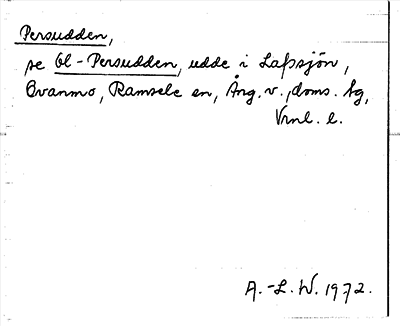 Persudden,
se Ol-Persudden, udde i Lafssjön,
Ovanmo, Ramsele sn, Ång. v., doms. lag,
Vrnl. l.
A.-L. W. 1972.